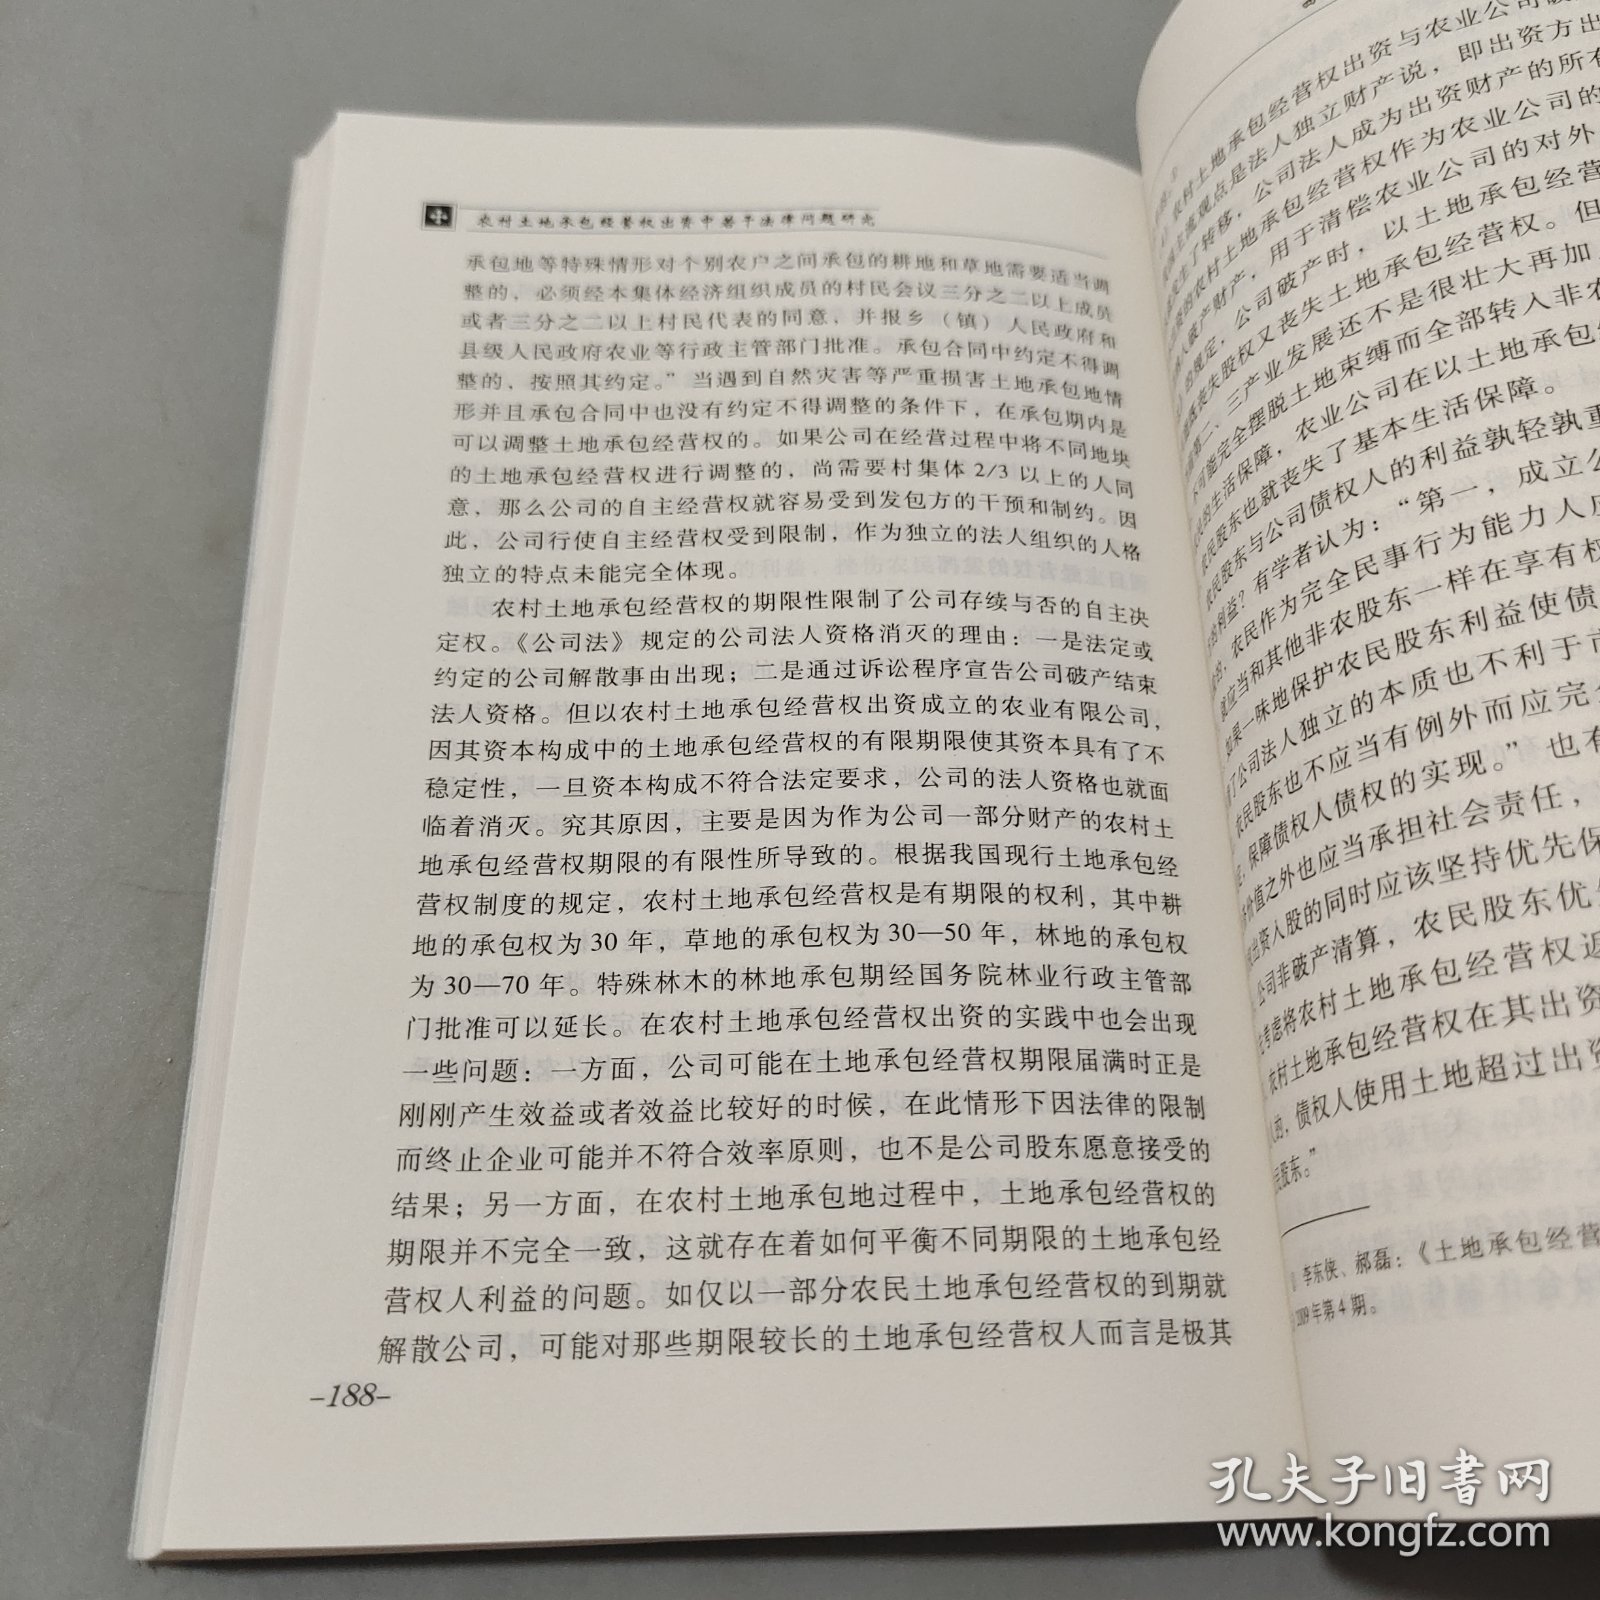 农村土地承包经营权出资中若干法律问题研究
承包地等特殊情形对个别农户之间承包的耕地和草地需要适当调
整的，必须经本集体经济组织成员的村民会议三分之二以上成员
或者三分之二以上村民代表的同意，并报乡（镇）人民政府和
县级人民政府农业等行政主管部门批准。承包合同中约定不得调
整的，按照其约定。”当遇到自然灾害等严重损害土地承包地情
形并且承包合同中也没有约定不得调整的条件下，在承包期内是
可以调整土地承包经营权的。如果公司在经营过程中将不同地块
的土地承包经营权进行调整的，尚需要村集体 2/3 以上的人同
意，那么公司的自主经营权就容易受到发包方的干预和制约。因
此，公司行使自主经营权受到限制，作为独立的法人组织的人格
独立的特点未能完全体现。
农村土地承包经营权的期限性限制了公司存续与否的自主决
定权。《公司法》规定的公司法人资格消灭的理由：一是法定或
约定的公司解散事由出现；二是通过诉讼程序宣告公司破产结束
法人资格。但以农村土地承包经营权出资成立的农业有限公司，
因其资本构成中的土地承包经营权的有限期限使其资本具有了不
稳定性，一旦资本构成不符合法定要求，公司的法人资格也就面
临着消灭。究其原因，主要是因为作为公司一部分财产的农村土
地承包经营权期限的有限性所导致的。根据我国现行土地承包经
营权制度的规定，农村土地承包经营权是有期限的权利，其中耕
地的承包权为 30 年，草地的承包权为 30—50 年，林地的承包权
为 30—70 年。特殊林木的林地承包期经国务院林业行政主管部
门批准可以延长。在农村土地承包经营权出资的实践中也会出现
一些问题：一方面，公司可能在土地承包经营权期限届满时正是
刚刚产生效益或者效益比较好的时候，在此情形下因法律的限制
而终止企业可能并不符合效率原则，也不是公司股东愿意接受的
结果；另一方面，在农村土地承包地过程中，土地承包经营权的
期限并不完全一致，这就存在着如何平衡不同期限的土地承包经
营权人利益的问题。如仅以一部分农民土地承包经营权的到期就
解散公司，可能对那些期限较长的土地承包经营权人而言是极其
-188-
农村土地承包经营权出资与农业公司
主流观点是法人独立财产说，即出资方出
发生了转移，公司法人成为出资财产的所有
的农村土地承包经营权作为农业公司的
破产财产，用于清偿农业公司的对外
的规定，公司破产时，以土地承包经营
丧失股权又丧失土地承包经营权。但
第二、三产业发展还不是很壮大再加
可能完全摆脱土地束缚而全部转入非农
的生活保障，农业公司在以土地承包经
农民股东也就丧失了基本生活保障。
农民股东与公司债权人的利益孰轻孰重
的利益？有学者认为：“第一，成立公
农民作为完全民事行为能力人应
就应当和其他非农股东一样在享有权
如果一味地保护农民股东利益使债
了公司法人独立的本质也不利于市
农民股东也不应当有例外而应完全
保障债权人债权的实现。”也有
价值之外也应当承担社会责任，
出资入股的同时应该坚持优先保
公司非破产清算，农民股东优先
考虑将农村土地承包经营权返
农村土地承包经营权在其出资
的，债权人使用土地超过出资
民股东。”
李东侠、郝磊：《土地承包经营
2009年第4期。
孔夫子旧书网
www.kongfz.com